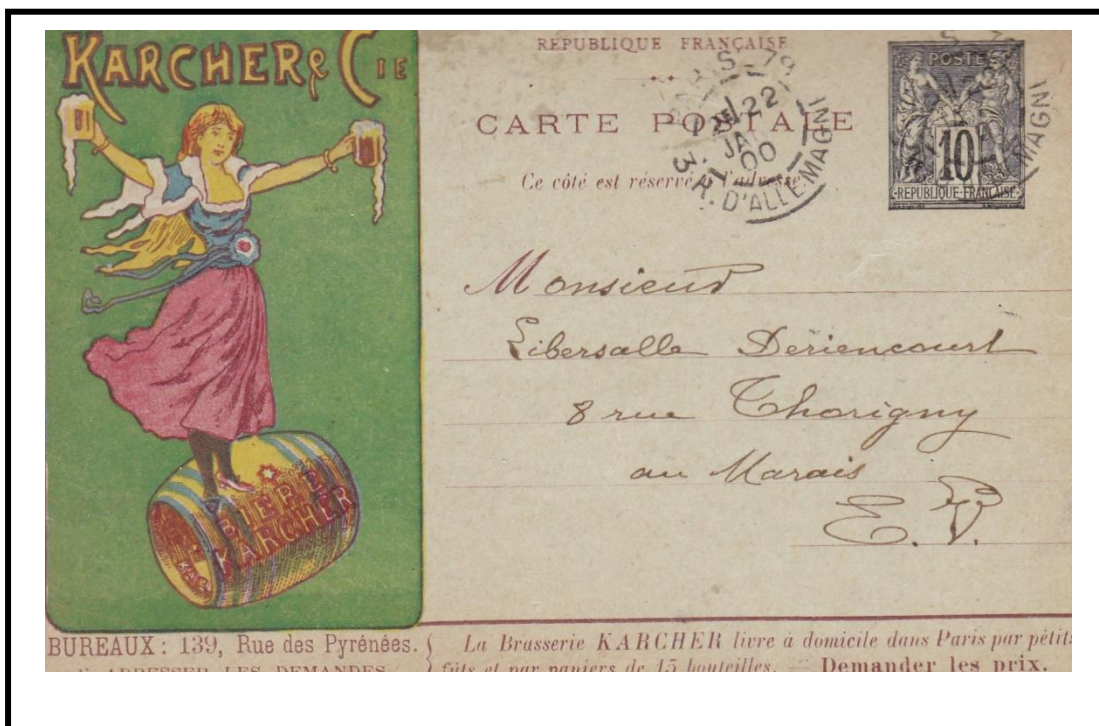 KARCHER & CIE
BI
BIERE
KARCHER
KAC
REPUBLIQUE FRANÇAISE
CARTE POSTALE
Ce côté est réservé à l'adresse
PARIS - 79
22
JA
00
R. D'ALLEMAGNE
POSTE
10
REPUBLIQUE FRANÇAISE
Monsieur
Libersalle Deriencourt
8 rue Thorigny
au Marais
E. V.
BUREAUX : 139, Rue des Pyrénées.
ADRESSER LES DEMANDES
La Brasserie KARCHER livre à domicile dans Paris par petits
fûts et par paniers de 15 bouteilles. — Demander les prix.